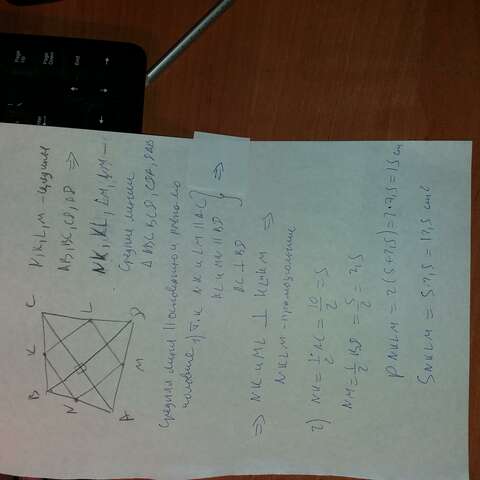 P, K, L, M – середины
AB, BC, CD, AD ⇒
NK, KL, LM, NM –
Средние линии
Δ ABC, BCD, CDA, DAB
B K C
N L
A M D
Средняя линия || основанию и равна
половине
1) т.к NK и LM || AC
KL и MN || BD
AC ⊥ BD
⇒
⇒ NK и ML ⊥ KL и NM ⇒
NKLM – прямоугольник
2) NK = 1/2 AC = 10/2 = 5
NM = 1/2 BD = 5/2 = 2,5
P NKLM = 2(5+2,5) = 2·7,5 = 15 см
S NKLM = 5·2,5 = 12,5 см²
Page Up
Page Down
End